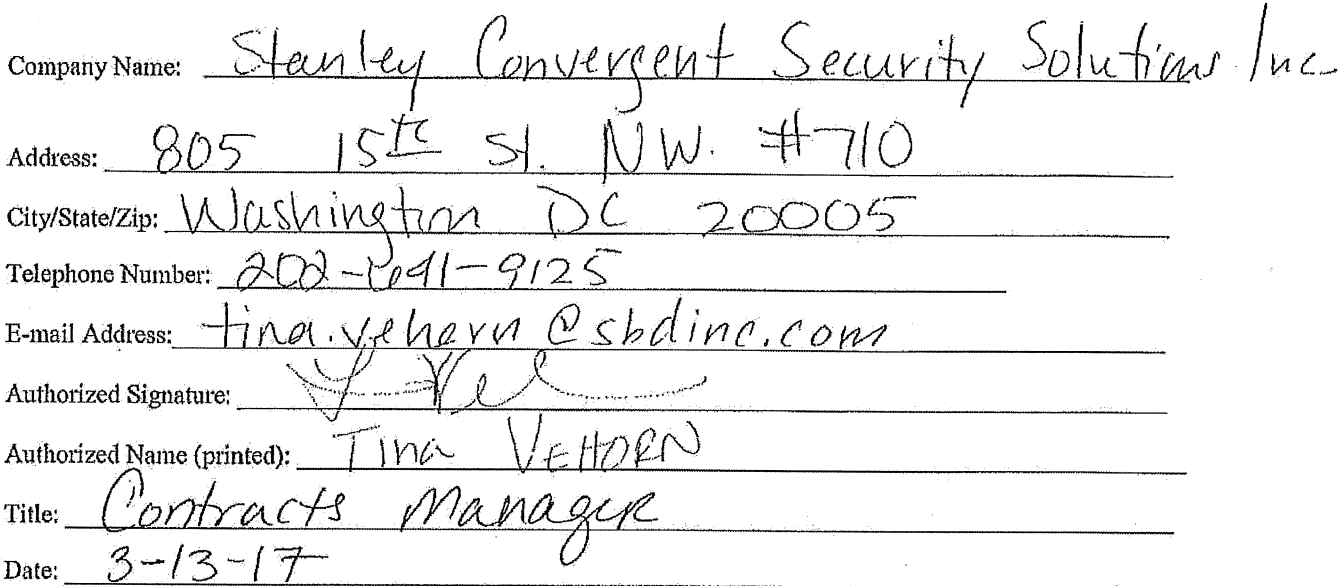 Company Name: Stanley Convergent Security Solutions Inc.
Address: 805 15th St. NW. #710
City/State/Zip: Washington DC 20005
Telephone Number: 202-641-9125
E-mail Address: tina.vehorn@sbdinc.com
Authorized Signature:
Authorized Name (printed): Tina VEHORN
Title: Contracts Manager
Date: 3-13-17